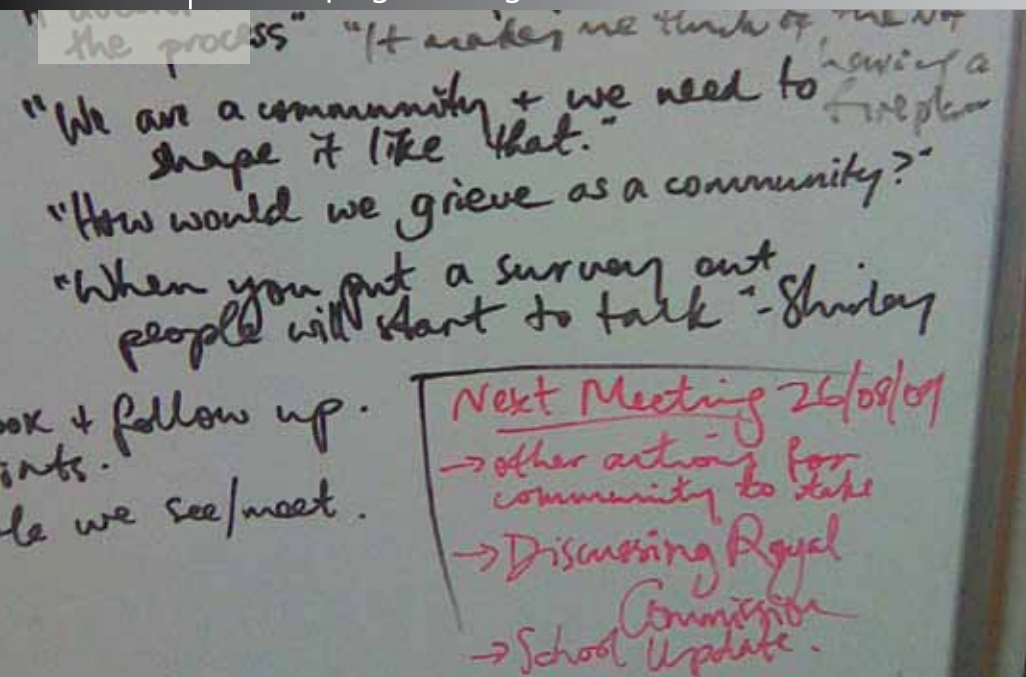 the process" "It makes me think of the not
having a
fireplan
"We are a community + we need to
shape it like that."
"How would we grieve as a community?"
"When you put a survey out
people will start to talk" - Shirley
ook + follow up.
ints.
le we see/meet.
Next Meeting 26/08/09
→ other actions for
community to take
→ Discussing Royal
Commission
→ School Update.